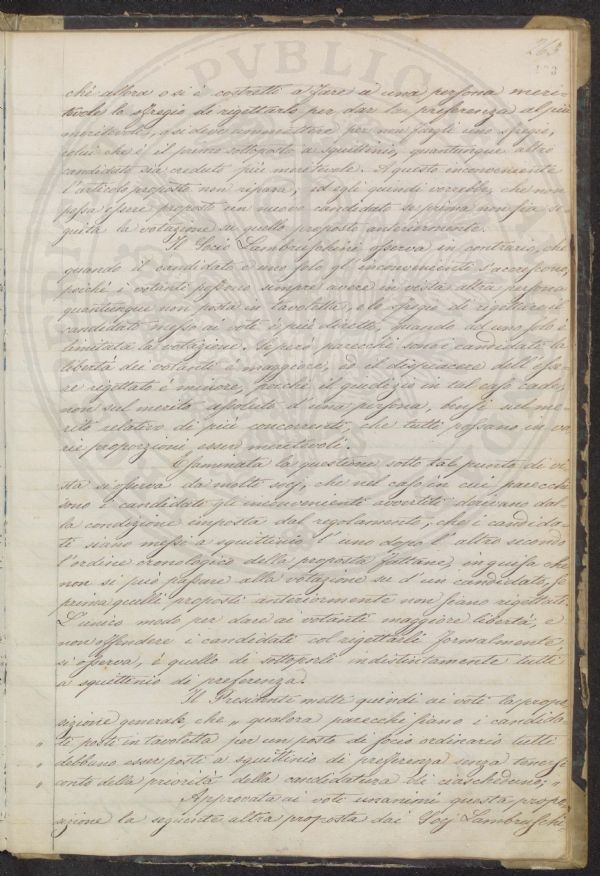 263
chè allora o si è costretti a fare a una persona meri-
tevole lo sfregio di rigettarlo per dar la preferenza al più
meritevole, o si deve ammettere per non fargli uno sfregio,
colui che è il primo sottoposto a squittinio, quantunque altro
candidato sia creduto più meritevole. A questo inconveniente
l'articolo proposto non ripara; ed egli quindi vorrebbe, che non
possa essere proposto un nuovo candidato se prima non sia se-
guita la votazione su quello proposto anteriormente.
Il Socio Lambruschini osserva in contrario, che
quando il candidato è uno solo gl'inconvenienti s'accrescono,
poichè i votanti possono sempre avere in veduta altra persona
quantunque non posta in tavoletta, e lo sfregio di rigettare il
candidato messo ai voti è più diretto, quando ad uno solo è
limitata la votazione. Se però parecchi sono i candidati la
libertà dei votanti è maggiore, ed il dispiacere dell'esse-
re rigettato è minore, perchè il giudizio in tal caso cade,
non sul merito assoluto d'una persona, bensì sul me-
rito relativo di più concorrenti, che tutti possano in va-
rie proporzioni esser meritevoli.
Esaminata la questione sotto tal punto di vi-
sta si osserva da molti socj, che nel caso in cui parecchi
sono i candidati gli inconvenienti avvertiti derivano dal-
la condizione imposta dal regolamento, che i candida-
ti siano messi a squittinio l'uno dopo l'altro secondo
l'ordine cronologico della proposta fattane, in guisa che
non si può passare alla votazione su d'un candidato, se
prima quelli proposti anteriormente non siano rigettati.
L'unico modo per dare ai votanti maggiore libertà, e
non offendere i candidati col rigettarli formalmente,
si osserva, è quello di sottoporli indistintamente tutti
a squittinio di preferenza.
Il Presidente mette quindi ai voti la propo-
sizione generale, che „ qualora parecchi siano i candida-
„ ti posti in tavoletta per un posto di socio ordinario tutti
„ debbano esser posti a squittinio di preferenza senza tenersi
„ conto della priorità della candidatura di ciascheduno; „
Approvata ai voti unanimi questa propo-
sizione la seguente altra proposta dai Socj Lambruschi-